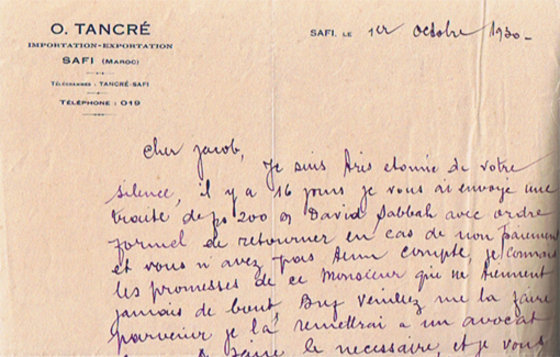 O. TANCRÉ
IMPORTATION-EXPORTATION
SAFI (MAROC)
TÉLÉGRAMMES : TANCRÉ-SAFI
TÉLÉPHONE : 019
SAFI, LE 1er Octobre 1930-
Cher Jacob,
Je suis très étonné de votre
silence, il y a 16 jours je vous ai envoyé une
traite de ps 200 David Sabbah avec ordre
formel de retourner en cas de non paiement
et vous n'avez pas tenu compte, je connais
les promesses de ce Monsieur que ne tiennent
jamais de bout, Bref veuillez me la faire
parvenir je la remettrai a un avocat
faire le necessaire, et je vous